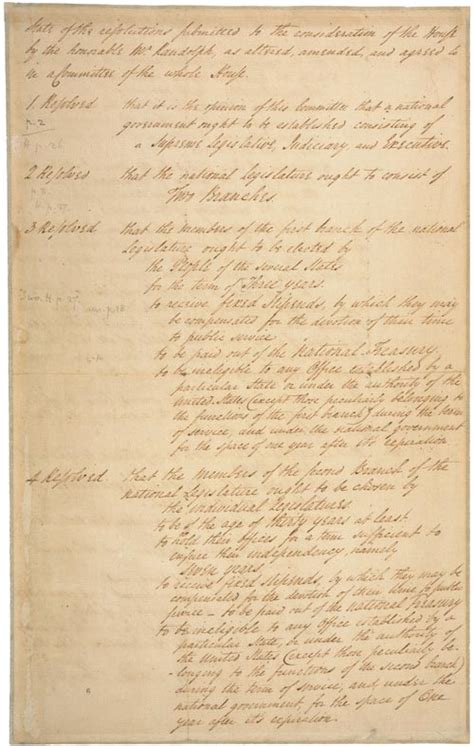 State of the resolutions submitted to the consideration of the House
by the honorable Mr. Randolph, as altered, amended, and agreed to
in a Committee of the whole House.
1 Resolved that it is the opinion of this Committee that a national
p. 2 government ought to be established consisting of
a Supreme Legislative, Judiciary, and Executive.
2 Resolved that the national Legislature ought to consist of
Two Branches.
3 Resolved that the members of the first branch of the national
Legislature ought to be elected by
the People of the several States
for the term of Three years.
to receive fixed Stipends, by which they may
be compensated for the devotion of their time
to public service
to be paid out of the National Treasury,
to be ineligible to any Office established by a
particular State or under the authority of the
United States (except those peculiarly belonging to
the functions of the first branch) during the term
of service, and under the national government
for the space of one year after its expiration.
4 Resolved. that the members of the second Branch of the
national Legislature ought to be chosen by
the individual Legislatures.
to be of the age of thirty years at least.
to hold their offices for a term sufficient to
ensure their independency, namely
seven years
to receive fixed Stipends, by which they may be
compensated for the devotion of their time to public
service - to be paid out of the National Treasury
to be ineligible to any Office established by a
particular State, or under the authority of
the United States (except those peculiarly be-
longing to the functions of the second branch)
during the term of service, and under the
national government, for the space of One
year after its expiration.